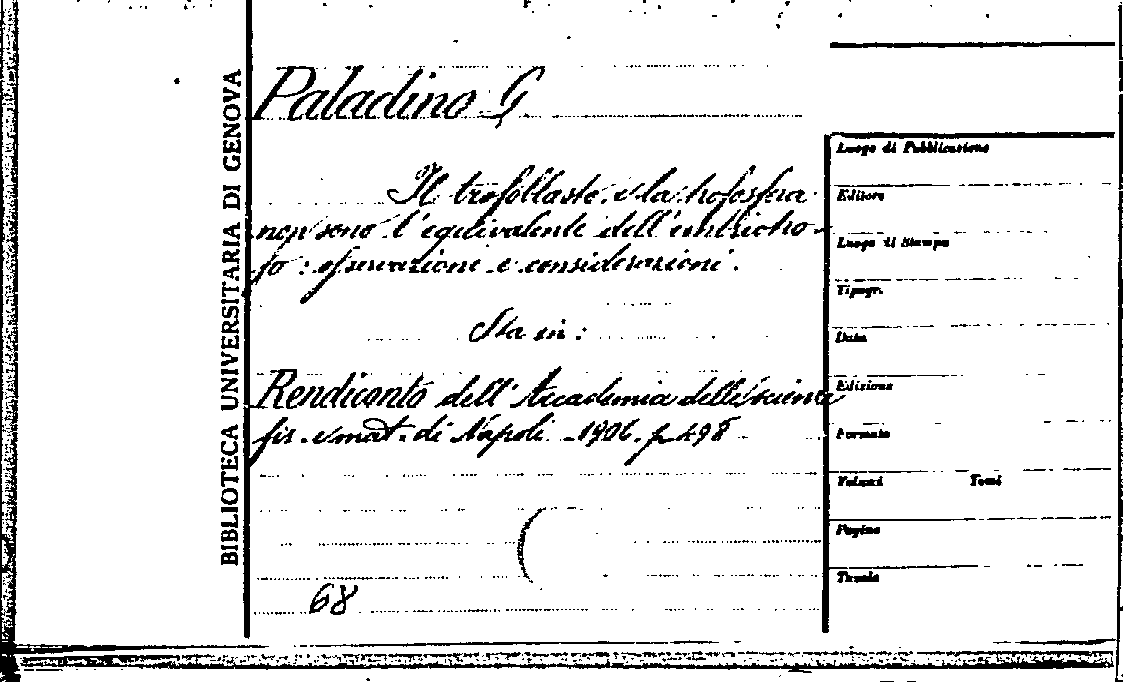 BIBLIOTECA UNIVERSITARIA DI GENOVA
Paladino G
Il trofoblasto e la trofosfera
non sono l'equivalente dell'embriotro-
fo: osservazioni e considerazioni.
Sta in:
Rendiconto dell'Accademia delle Scienze
fis. e mat. di Napoli. 1906. p. 498
68
Luogo di Pubblicazione
Editore
Luogo di Stampa
Tipogr.
Data
Edizione
Formato
Volumi Tomi
Pagine
Tavole